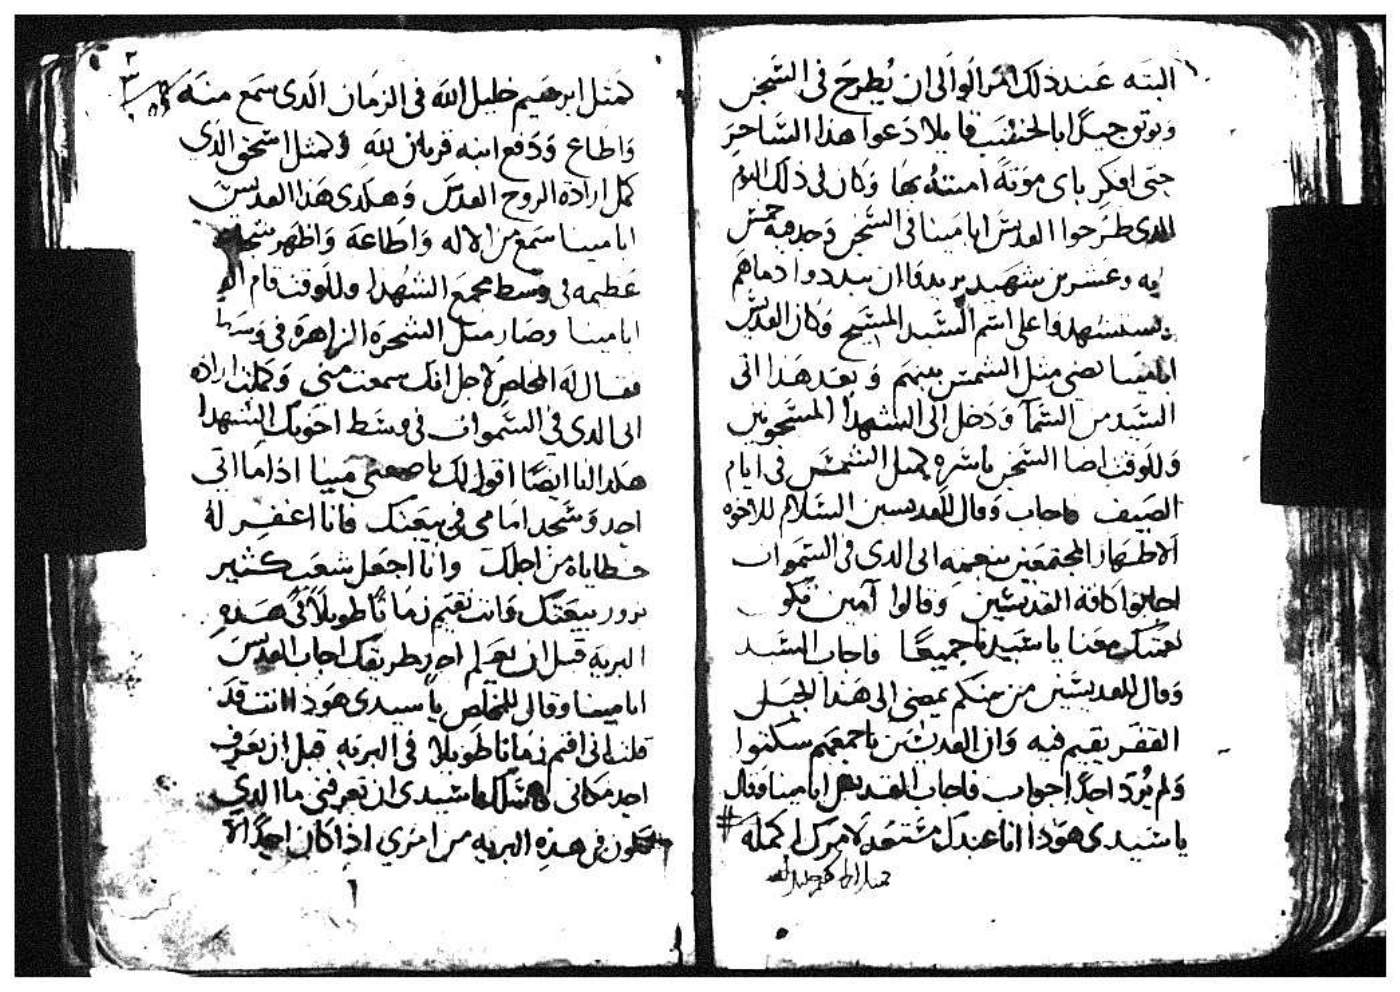 البته عند ذلك امر الوالى ان يُطرح فى السّجن
ويوتوق جيدًا بالخشب قايلا دعوا هذا السّاحر
حتى افكر باى موتة اميته بها وكان فى ذلك اليوم
الدى طرحوا القديس ابا مينا فى السّجن وجد فيه خمس
ايه وعشرين شهيد يريدوا ان يبددوا دماهم
ويستشهدوا على اسم السّيد المسّيح وكان القديس
ابا مينا يضى مثل الشمس بينهم وبعد هدا اتى
السّيد من السّما ودخل الى الشهدا المسّجونين
وللوقت اضا السّجن باسّره كمثل الشمّس فى ايام
الصّيف فاجاب وقال للقديسين السّلام للاخوه
الاطهار المجتمعين بنعمة ابى الدى فى السّموات
اجابوا كافة القديسّين وقالوا آمين تكون
نعمتك معنا يا سّيدنا جميعًا فاجاب السّيد
وقال للقديسّين من منكم يمضى الى هدا الجبل
القفر يقيم فيه وان القديسّين باجمعهم سّكتوا
ولم يُردّ احدًا جواب فاجاب القديس ابا مينا وقال
يا سّيدى هوذا انا عبدك مسّتعد لامرك كمله
كمثل ابرهيم خليل الله
كمثل ابرهيم خليل الله فى الزمان الدى سمع منه
واطاع ودفع ابنه قربان لله وكمثل اسّحق الدى
كمل ارادة الروح القدس وهكدى هدا القديس
ابا مينا سمع من الاله واطاعه واظهر شجاعه
عظيمه فى وسط مجمع الشهدا وللوقت قام
ابا مينا وصار مثل الشجرة الزاهرة فى وسط
فقال له المخلص من اجل انك سمعت منى وكملت ارادة
ابى الدى فى السّموات فى وسّط اخوتك الشهدا
هكدا انا ايضًا اقول لك يا صفيى مينا ادا ما اتى
احد وسّجد امامى فى بيعتك فانا اغفر له
خطاياه من اجلك وانا اجعل شعب كثير
يزور بيعتك وانت تقيم زمانًا طويلًا فى هده
البريه قبل ان يعلم احد طريقك اجاب القديسّ
ابا مينا وقال للمخلص يا سيدى هوذا انت قد
قلت انى اقيم زمانا طويلا فى البريه قبل ان يعرف
احد مكانى يا سّيدى ان تعرفنى ما الدى
يكون فى هذه البريه من امرى اذا كان احدًا لا